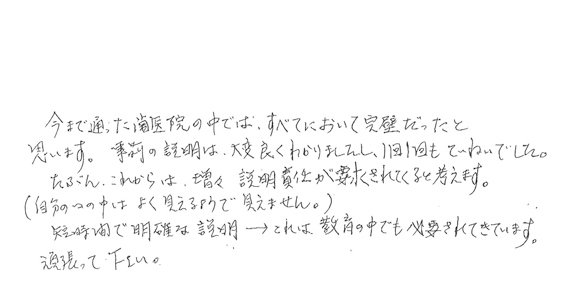 今まで通った歯医院の中では、すべてにおいて完璧だったと
思います。事前の説明は、大変良くわかりましたし、1回1回もていねいでした。
たぶん、これからは、増々説明責任が要求されてくると考えます。
(自分の口の中はよく見えるようで見えません。)
短時間で明確な説明→これは教育の中でも必要されてきています。
頑張って下さい。